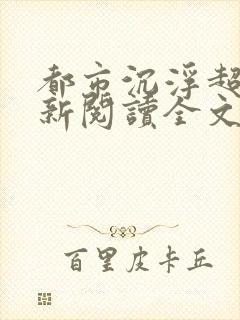 都市沉浮超
新閱讀全文
百里皮卡丘